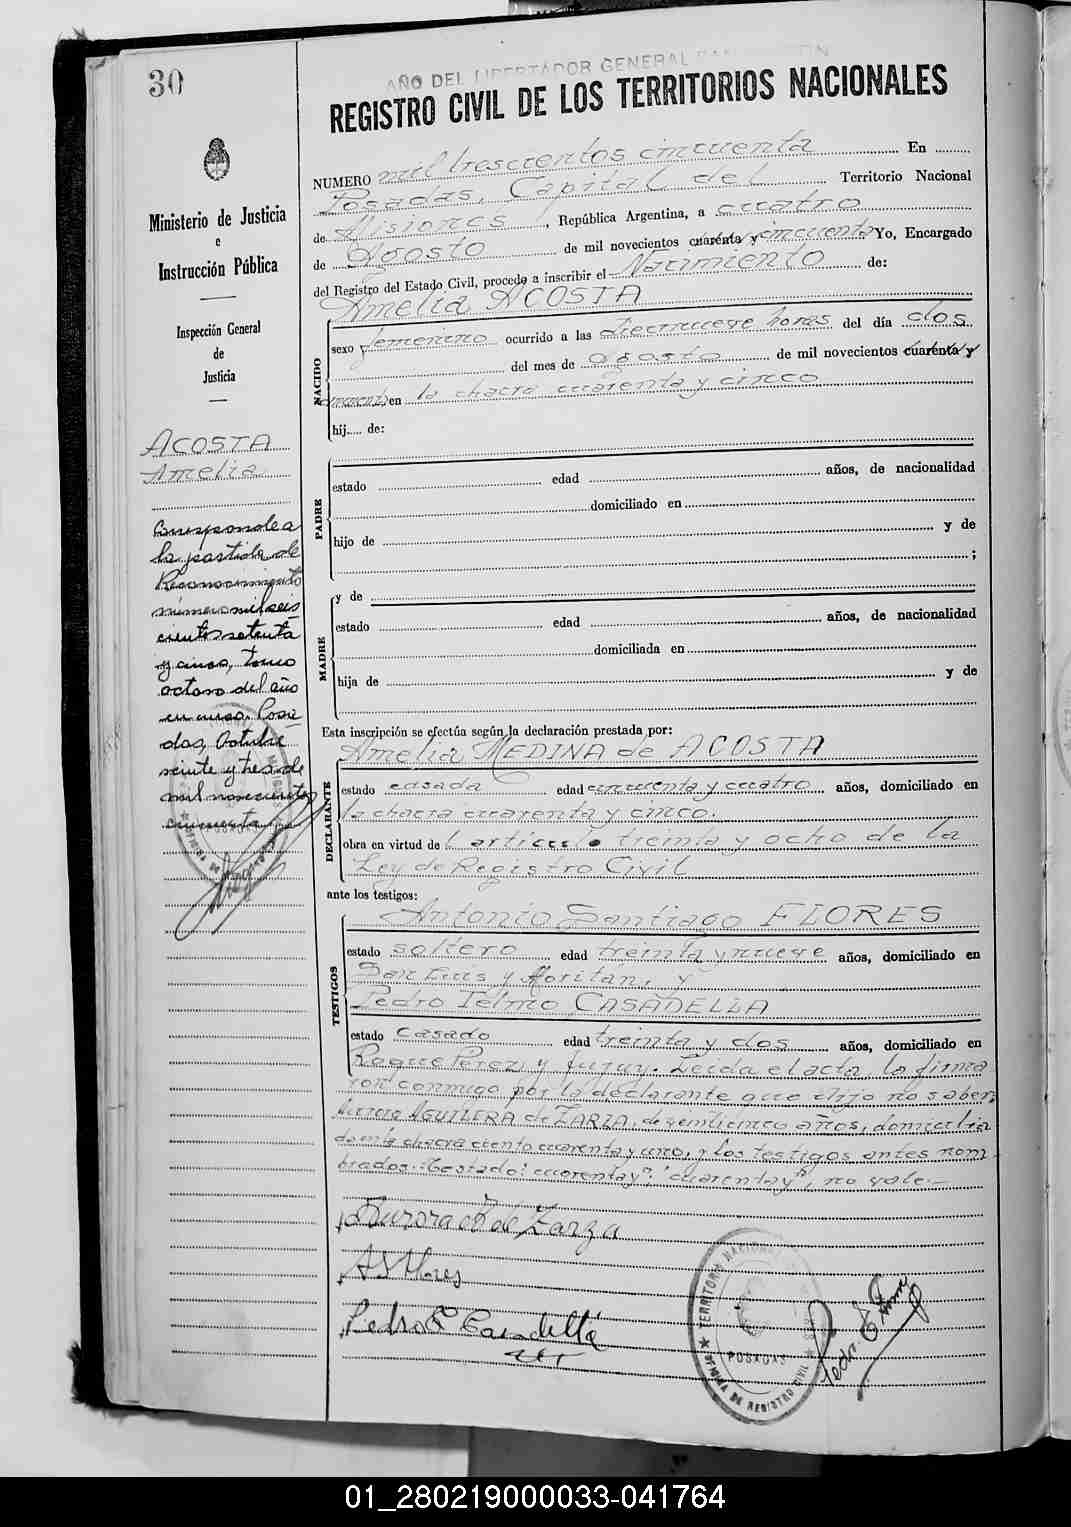 30
AÑO DEL LIBERTADOR GENERAL
REGISTRO CIVIL DE LOS TERRITORIOS NACIONALES
Ministerio de Justicia
e
Instrucción Pública
Inspección General
de
Justicia
ACOSTA
Amelia
Corresponde a
la partida de
Reconocimiento
número mil seis
cientos setenta
y cinco, tomo
octavo del año
en curso. Posa
das, Octubre
veinte y tres de
mil novecientos
cincuenta
NUMERO mil trescientos cincuenta En
Posadas, Capital del Territorio Nacional
de Misiones, República Argentina, a cuatro
de Agosto de mil novecientos cuarenta y cincuenta Yo, Encargado
del Registro del Estado Civil, procedo a inscribir el Nacimiento de:
Amelia ACOSTA
NACIDO
sexo femenino ocurrido a las diecinueve horas del día dos
del mes de agosto de mil novecientos cuarenta y
cincuenta en la chacra cuarenta y cinco
hij de:
PADRE
estado edad años, de nacionalidad
domiciliado en
hijo de y de
;
MADRE
y de
estado edad años, de nacionalidad
domiciliada en
hija de y de
Esta inscripción se efectúa según la declaración prestada por:
Amelia MEDINA de ACOSTA
DECLARANTE
estado casada edad cincuenta y cuatro años, domiciliado en
la chacra cuarenta y cinco.
obra en virtud del artículo treinta y ocho de la
Ley de Registro Civil
ante los testigos:
Antonio Santiago FLORES
TESTIGOS
estado soltero edad treinta y nueve años, domiciliado en
San Luis y Moritán, y
Pedro Telmo CASADELLA
estado casado edad treinta y dos años, domiciliado en
Roque Perez y Jujuy. Leida el acta, la firma
ron conmigo por la declarante que dijo no saber,
Aurora AGUILERA de ZARZA, de veinticinco años, domicilia
da en la chacra ciento cuarenta y uno, y los testigos antes nom
brados. Testado: "cuarenta y", "cuarenta y", no vale.—
Aurora A de Zarza
A S Flores
Pedro T Casadellá
TERRITORIO NACIONAL DE MISIONES
POSADAS
OFICINA DE REGISTRO CIVIL
01_280219000033-041764